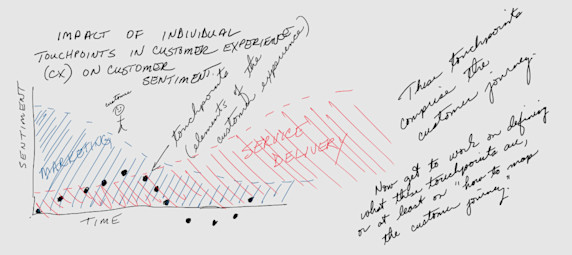 IMPACT OF INDIVIDUAL
TOUCHPOINTS IN CUSTOMER EXPERIENCE
(CX) ON CUSTOMER
SENTIMENT.
SENTIMENT
customer
touchpoints
(elements of the
customer experience)
MARKETING
SERVICE
DELIVERY
TIME
These touchpoints
comprise the
customer journey.
Now get to work on defining
what these touchpoints are,
or at least on "how to map
the customer journey."